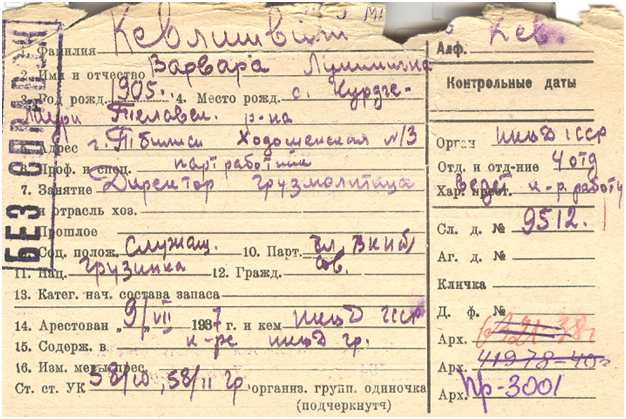 БЕЗ СПРАВКИ
1. Фамилия Кевлишвили
2. Имя и отчество Варвара
3. Год рожд. 1905. 4. Место рожд. с. Курдге-
лаури Телавск. р-на
Адрес г. Тбилиси Ходошенская №13
6. Проф. и спец. партработник
7. Занятие Директор грузмолптица
отрасль хоз.
Прошлое
Соц. полож. Служащ. 10. Парт. чл. ВКПб
11. Нац. Грузинка 12. Гражд. СССР
13. Катег. нач. состава запаса
14. Арестован „9" VII 1937 г. и кем НКВД ГССР
15. Содерж. в к-ре НКВД гр.
16. Изм. меры прес.
Ст. ст. УК 58/10, 58/11 гр организ. групп. одиночка
(подчеркнутч)
Алф. Кев
Контрольные даты
Орган НКВД ГССР
Отд. и отд-ние 4 отд
Хар. прест. Ведет к-р. работу
Сл. д. № 9512.
Аг. д. №
Кличка
Д. ф. №
Арх.
Арх. 41978-40г
Арх. Пр-3001